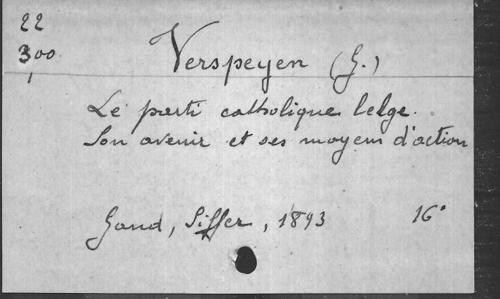 22
300
Verspeyen (G.)
Le parti catholique belge.
Son avenir et ses moyens d'action
Gand, Siffer, 1893 16°